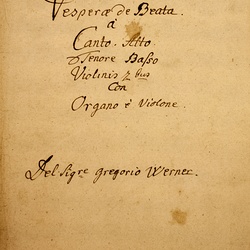 Vesperæ de Beata.
à
Canto. Alto.
Tenore Basso
Violinis 2 bus
Con
Organo è Violone.
Del Sigre gregorio Werner.